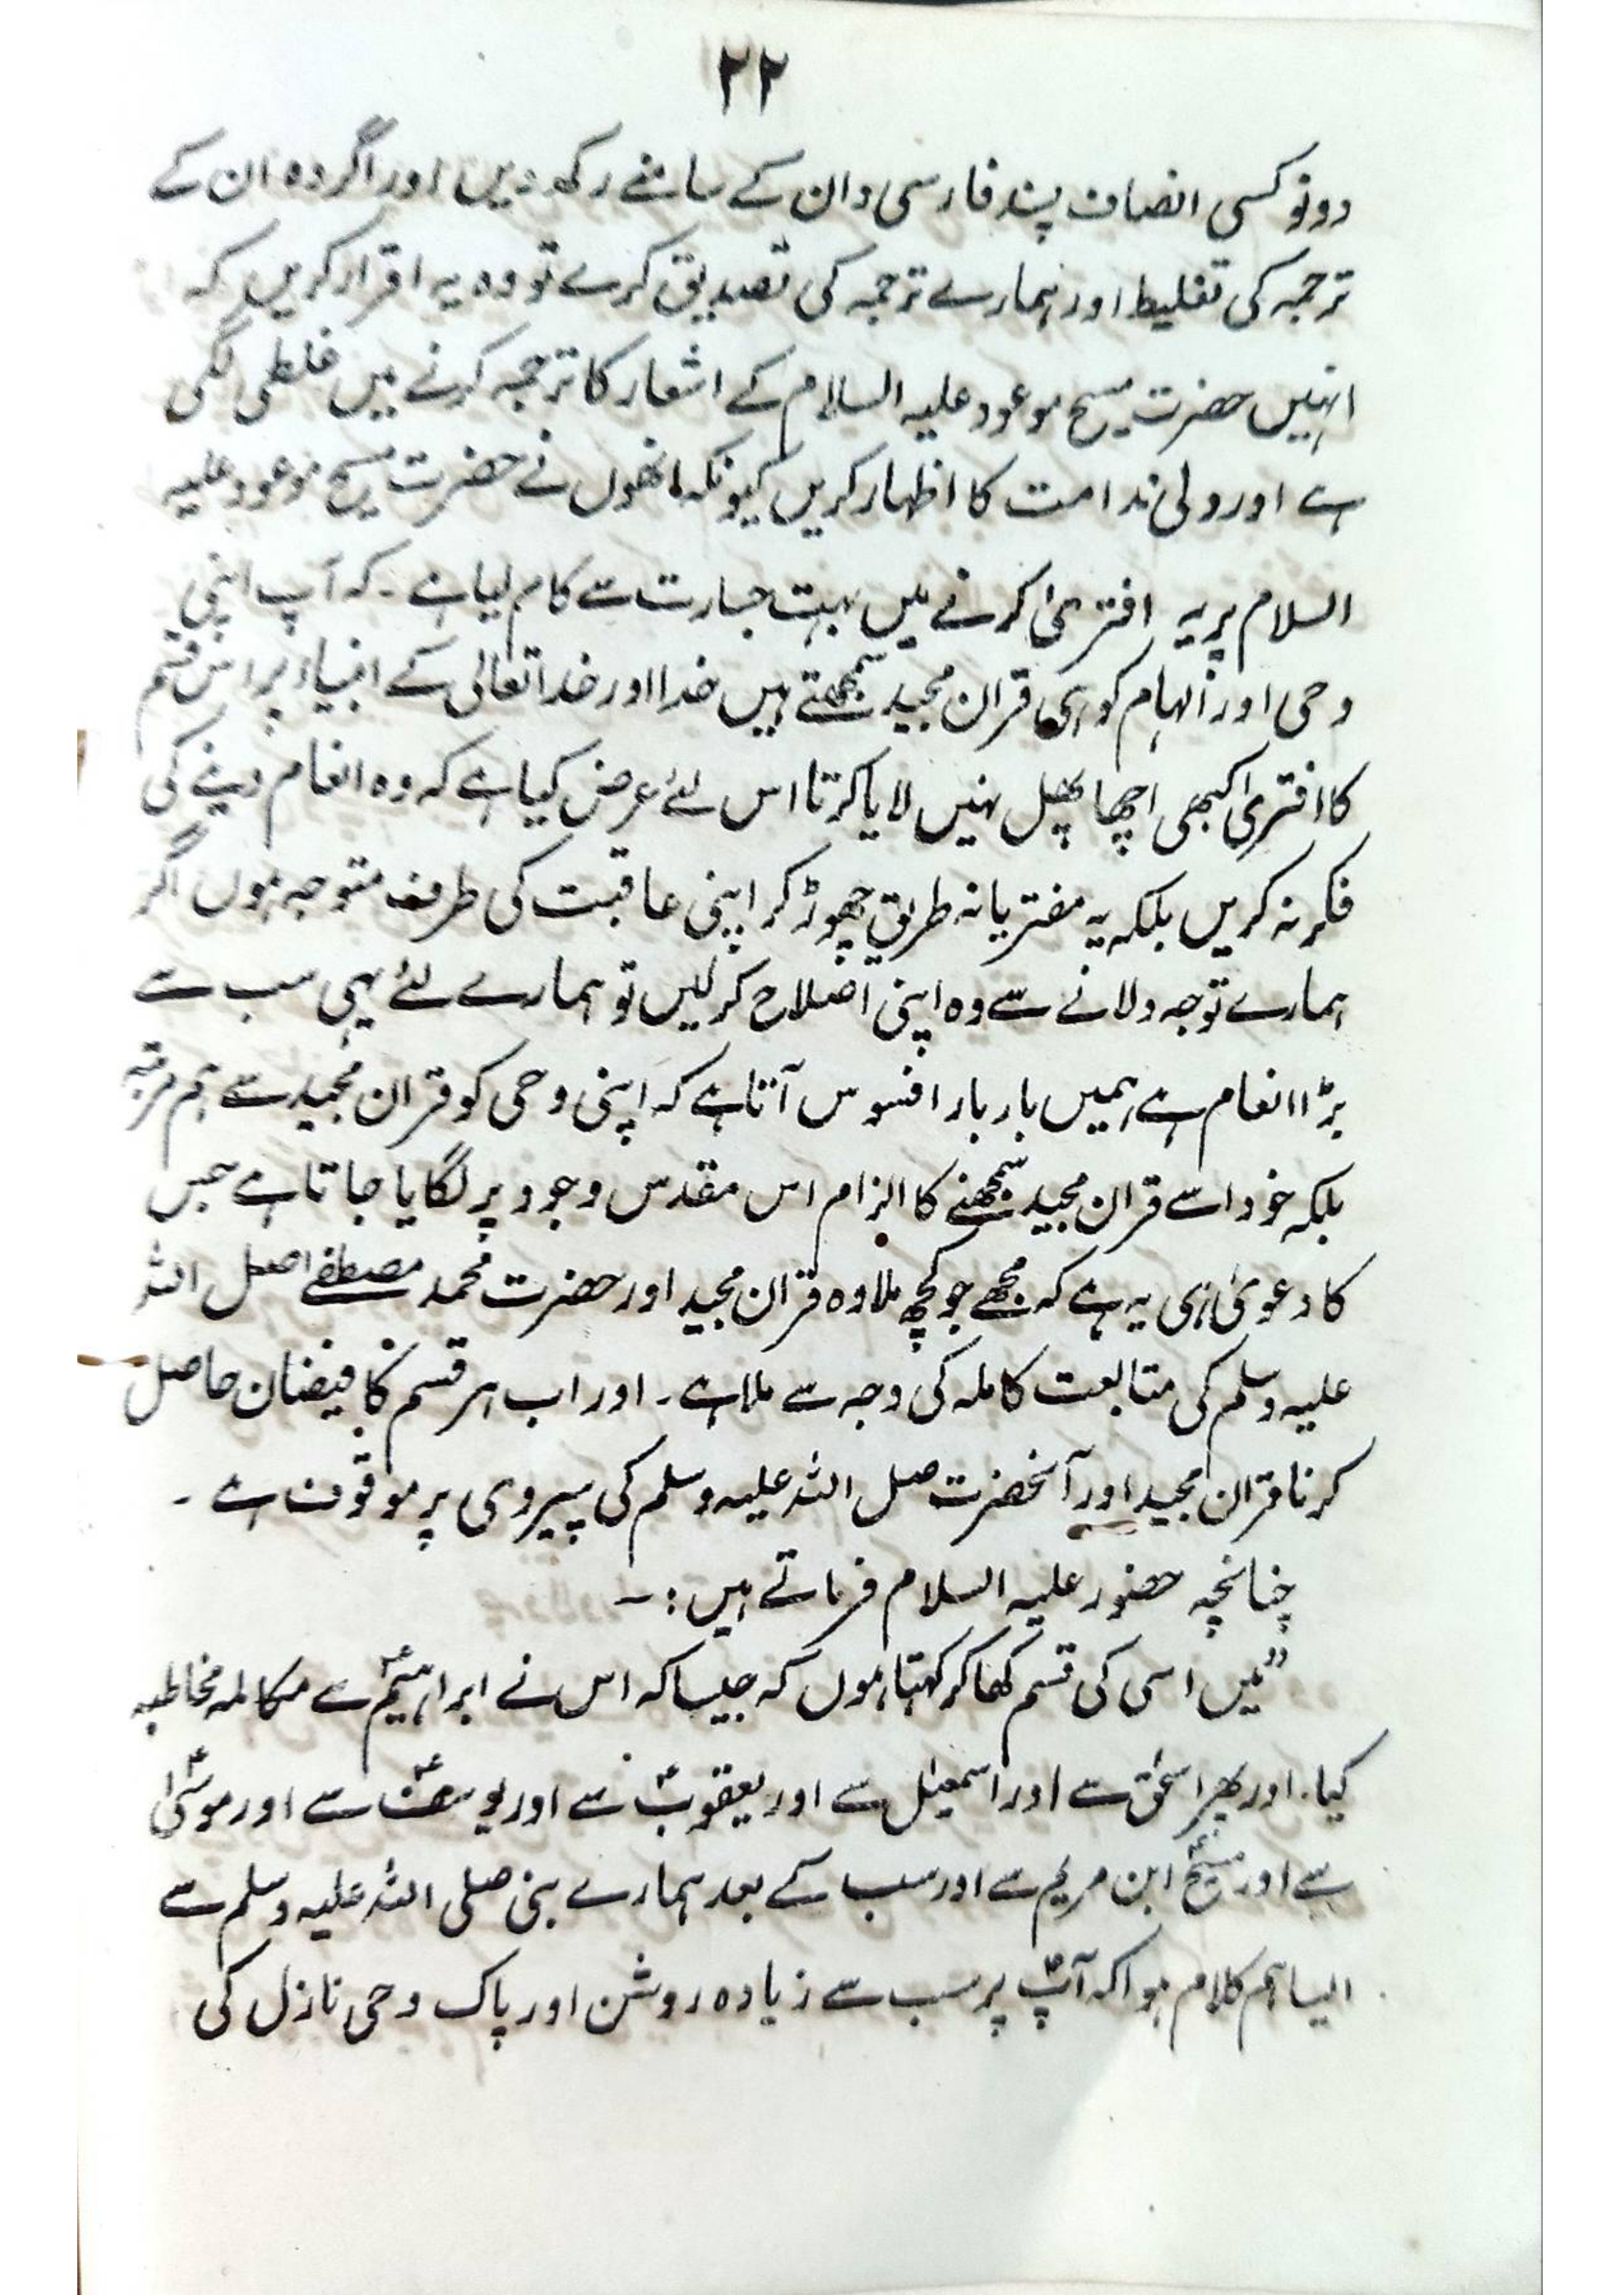 ۲۲
دونو کسی انصاف پسند فارسی دان کے سامنے رکھ دیں اور اگر وہ ان کے
ترجمہ کی تغلیط اور ہمارے ترجمہ کی تصدیق کرے تو وہ یہ اقرار کریں کہ
انہیں حضرت مسیح موعود علیہ السلام کے اشعار کا ترجمہ کرنے میں غلطی لگی
ہے اور دلی ندامت کا اظہار کریں کیونکہ انھوں نے حضرت مسیح موعود علیہ
السلام پر یہ افتریٰ کرنے میں بہت جسارت سے کام لیا ہے ۔ کہ آپ اپنی
وحی اور الہام کو ہی قران مجید سمجھتے ہیں خدا اور خدا تعالی کے انبیاء پر اس قسم
کا افتریٰ کبھی اچھا پھل نہیں لایا کرتا اس لئے عرض کیا ہے کہ وہ انعام دینے کی
فکر نہ کریں بلکہ یہ مفتریانہ طریق چھوڑ کر اپنی عاقبت کی طرف متوجہ ہوں اگر
ہمارے توجہ دلانے سے وہ اپنی اصلاح کر لیں تو ہمارے لئے یہی سب سے
بڑا انعام ہے ہمیں بار بار افسوس آتا ہے کہ اپنی وحی کو قران مجید سے ہم مرتبہ
بلکہ خود اسے قران مجید سمجھنے کا الزام اس مقدس وجود پر لگایا جاتا ہے جس
کا دعویٰ ہی یہ ہے کہ مجھے جو کچھ ملا وہ قران مجید اور حضرت محمد مصطفے اصل اللہ
علیہ وسلم کی متابعت کاملہ کی وجہ سے ملا ہے ۔ اور اب ہر قسم کا فیضان حاصل
کرنا قران مجید اور آنحضرت صل اللہ علیہ وسلم کی پیروی پر موقوف ہے ۔
چنانچہ حضور علیہ السلام فرماتے ہیں : ۔
”میں اسی کی قسم کھا کر کہتا ہوں کہ جیسا کہ اس نے ابراہیمؑ سے مکالمہ مخاطبہ
کیا ۔ اور پھر اسحٰق سے اور اسمعیلؑ سے اور یعقوبؑ سے اور یوسفؑ سے اور موسیٰؑ
سے اور مسیحؑ ابن مریم سے اور سب کے بعد ہمارے نبی صلی اللہ علیہ وسلم سے
ایسا ہم کلام ہوا کہ آپؐ پر سب سے زیادہ روشن اور پاک وحی نازل کی